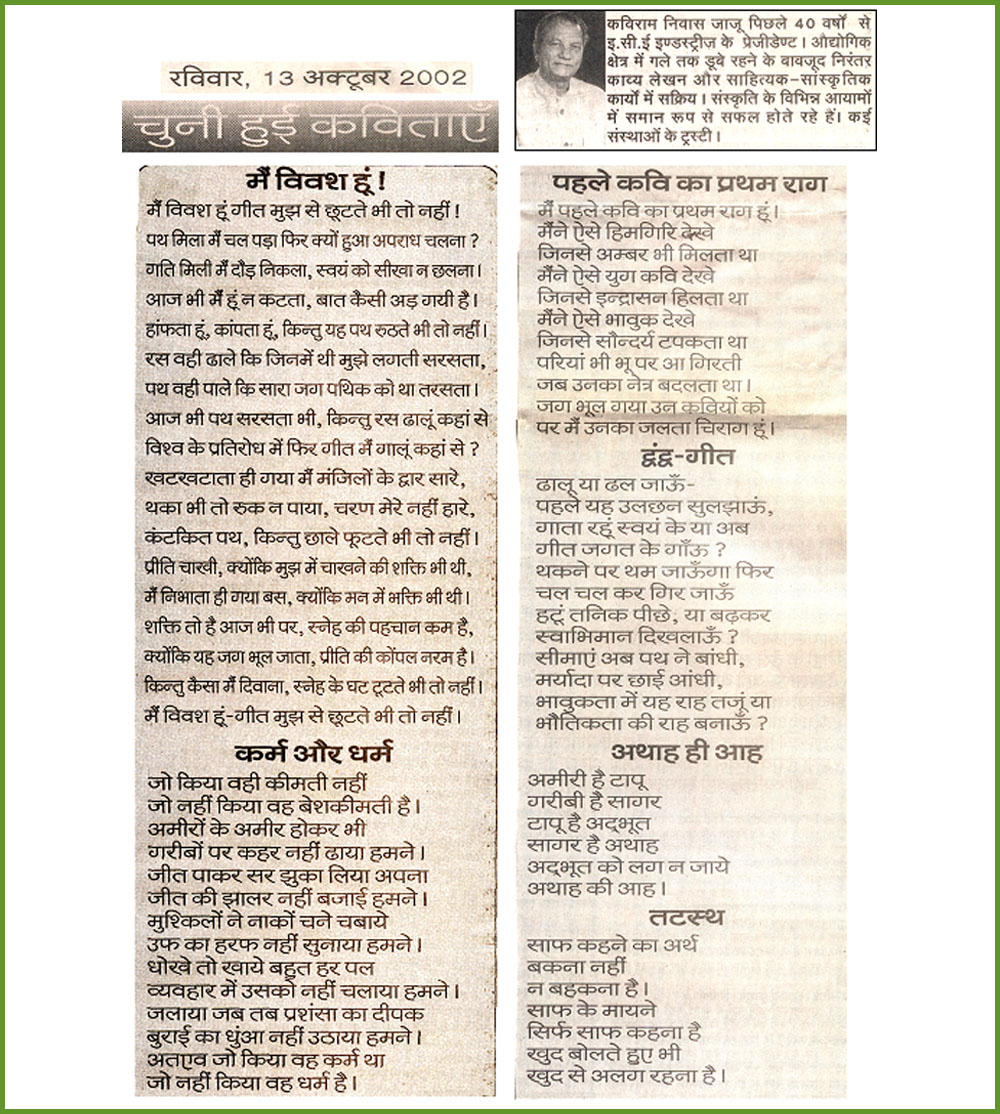 रविवार, 13 अक्टूबर 2002
चुनी हुई कविताएँ
कविराम निवास जाजू पिछले 40 वर्षो से
इ.सी.ई इण्डस्ट्रीज के प्रेजीडेण्ट। औद्योगिक
क्षेत्र में गले तक डूबे रहने के बावजूद निरंतर
काव्य लेखन और साहित्यक-सांस्कृतिक
कार्यो में सक्रिय। संस्कृति के विभिन्न आयामों
में समान रूप से सफल होते रहे हैं। कई
संस्थाओं के ट्रस्टी।
मैं विवश हूं!
मैं विवश हूं गीत मुझ से छूटते भी तो नहीं!
पथ मिला मैं चल पड़ा फिर क्यों हुआ अपराध चलना?
गति मिली मैं दौड़ निकला, स्वयं को सीखा न छलना।
आज भी मैं हूं न कटता, बात कैसी अड़ गयी है।
हांफता हूं, कांपता हूं, किन्तु यह पथ रुठते भी तो नहीं।
रस वही ढाले कि जिनमें थी मुझे लगती सरसता,
पथ वही पाले कि सारा जग पथिक को था तरसता।
आज भी पथ सरसता भी, किन्तु रस ढालूं कहां से
विश्व के प्रतिरोध में फिर गीत मैं गालूं कहां से?
खटखटाता ही गया मैं मंजिलों के द्वार सारे,
थका भी तो रुक न पाया, चरण मेरे नहीं हारे,
कंटकित पथ, किन्तु छाले फूटते भी तो नहीं।
प्रीति चाखी, क्योंकि मुझ में चाखने की शक्ति भी थी,
मैं निभाता ही गया बस, क्योंकि मन में भक्ति भी थी।
शक्ति तो है आज भी पर, स्नेह की पहचान कम है,
क्योंकि यह जग भूल जाता, प्रीति की कोंपल नरम है।
किन्तु कैसा मैं दिवाना, स्नेह के घट टूटते भी तो नहीं।
मैं विवश हूं-गीत मुझ से छूटते भी तो नहीं।
कर्म और धर्म
जो किया वही कीमती नहीं
जो नहीं किया वह बेशकीमती है।
अमीरों के अमीर होकर भी
गरीबों पर कहर नहीं ढाया हमने।
जीत पाकर सर झुका लिया अपना
जीत की झालर नहीं बजाई हमने।
मुश्किलों ने नाकों चने चबाये
उफ का हरफ नहीं सुनाया हमने।
धोखे तो खाये बहुत हर पल
व्यवहार में उसको नहीं चलाया हमने।
जलाया जब तब प्रशंसा का दीपक
बुराई का धुंआ नहीं उठाया हमने।
अतएव जो किया वह कर्म था
जो नहीं किया वह धर्म है।
पहले कवि का प्रथम राग
मैं पहले कवि का प्रथम राग हूं।
मैंने ऐसे हिमगिरि देखे
जिनसे अम्बर भी मिलता था
मैंने ऐसे युग कवि देखे
जिनसे इन्द्रासन हिलता था
मैंने ऐसे भावुक देखे
जिनसे सौन्दर्य टपकता था
परियां भी भू पर आ गिरती
जब उनका नेत्र बदलता था।
जग भूल गया उन कवियों को
पर मैं उनका जलता चिराग हूं।
द्वंद्व-गीत
ढालू या ढल जाऊँ-
पहले यह उलछन सुलझाऊं,
गाता रहूं स्वयं के या अब
गीत जगत के गाँऊ?
थकने पर थम जाऊँगा फिर
चल चल कर गिर जाऊँ
हटूं तनिक पीछे, या बढ़कर
स्वाभिमान दिखलाऊँ?
सीमाएं अब पथ ने बांधी,
मर्यादा पर छाई आंधी,
भावुकता में यह राह तजूं या
भौतिकता की राह बनाऊँ?
अथाह ही आह
अमीरी है टापू
गरीबी है सागर
टापू है अद्‌भूत
सागर है अथाह
अद्‌भूत को लग न जाये
अथाह की आह।
तटस्थ
साफ कहने का अर्थ
बकना नहीं
न बहकना है।
साफ के मायने
सिर्फ साफ कहना है
खुद बोलते हुए भी
खुद से अलग रहना है।